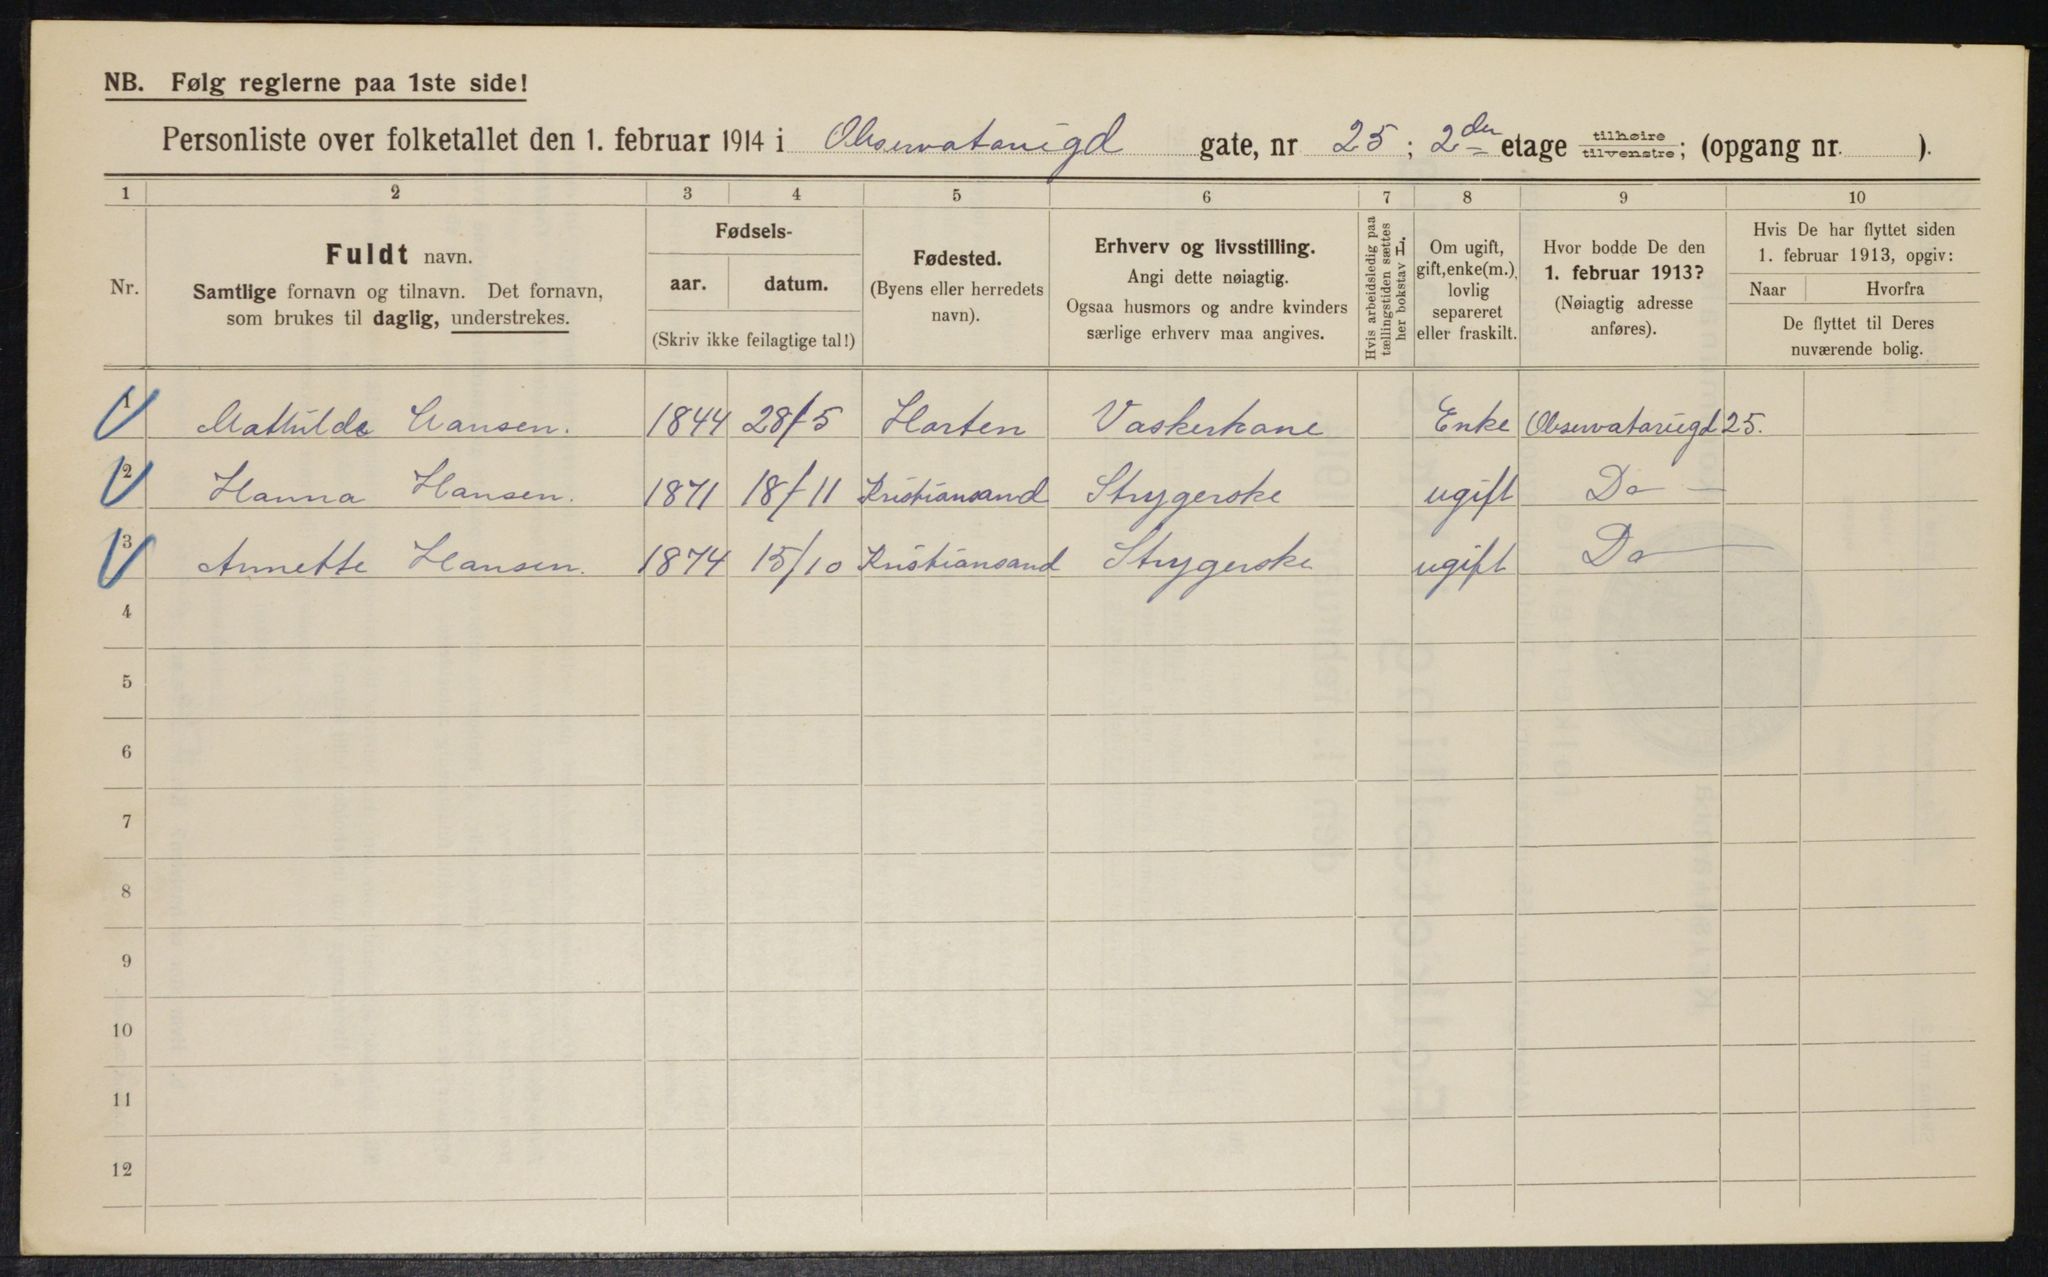 NB. Følg reglerne paa 1ste side!
Personliste over folketallet den 1. februar 1914 i Observatoriegd gate, nr 25; 2den etage tilhøire/tilvenstre; (opgang nr. ).
1 2 3 4 5 6 7 8 9 10
Nr.
Fuldt navn.
Samtlige fornavn og tilnavn. Det fornavn,
som brukes til daglig, understrekes.
Fødsels-
aar. datum.
(Skriv ikke feilagtige tal!)
Fødested.
(Byens eller herredets
navn).
Erhverv og livsstilling.
Angi dette nøiagtig.
Ogsaa husmors og andre kvinders
særlige erhverv maa angives.
Hvis arbeidsledig paa
tællingstiden sættes
her bokstav L.
Om ugift,
gift, enke(m.),
lovlig
separeret
eller fraskilt.
Hvor bodde De den
1. februar 1913?
(Nøiagtig adresse
anføres).
Hvis De har flyttet siden
1. februar 1913, opgiv:
Naar Hvorfra
De flyttet til Deres
nuværende bolig.
1 Mathilde Hansen. 1844 28/5 Horten Vaskerkone Enke Observatoriegd 25.
2 Hanna Hansen. 1871 18/11 Kristiansand Strygerske ugift Do
3 Annette Hansen. 1874 15/10 Kristiansand Strygerske ugift Do
4
5
6
7
8
9
10
11
12